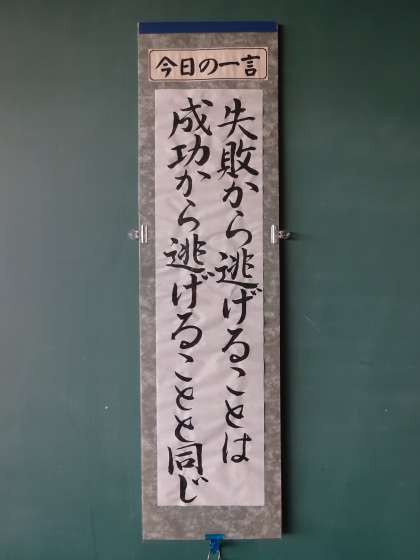 今日の一言
失敗から逃げることは
成功から逃げることと同じ